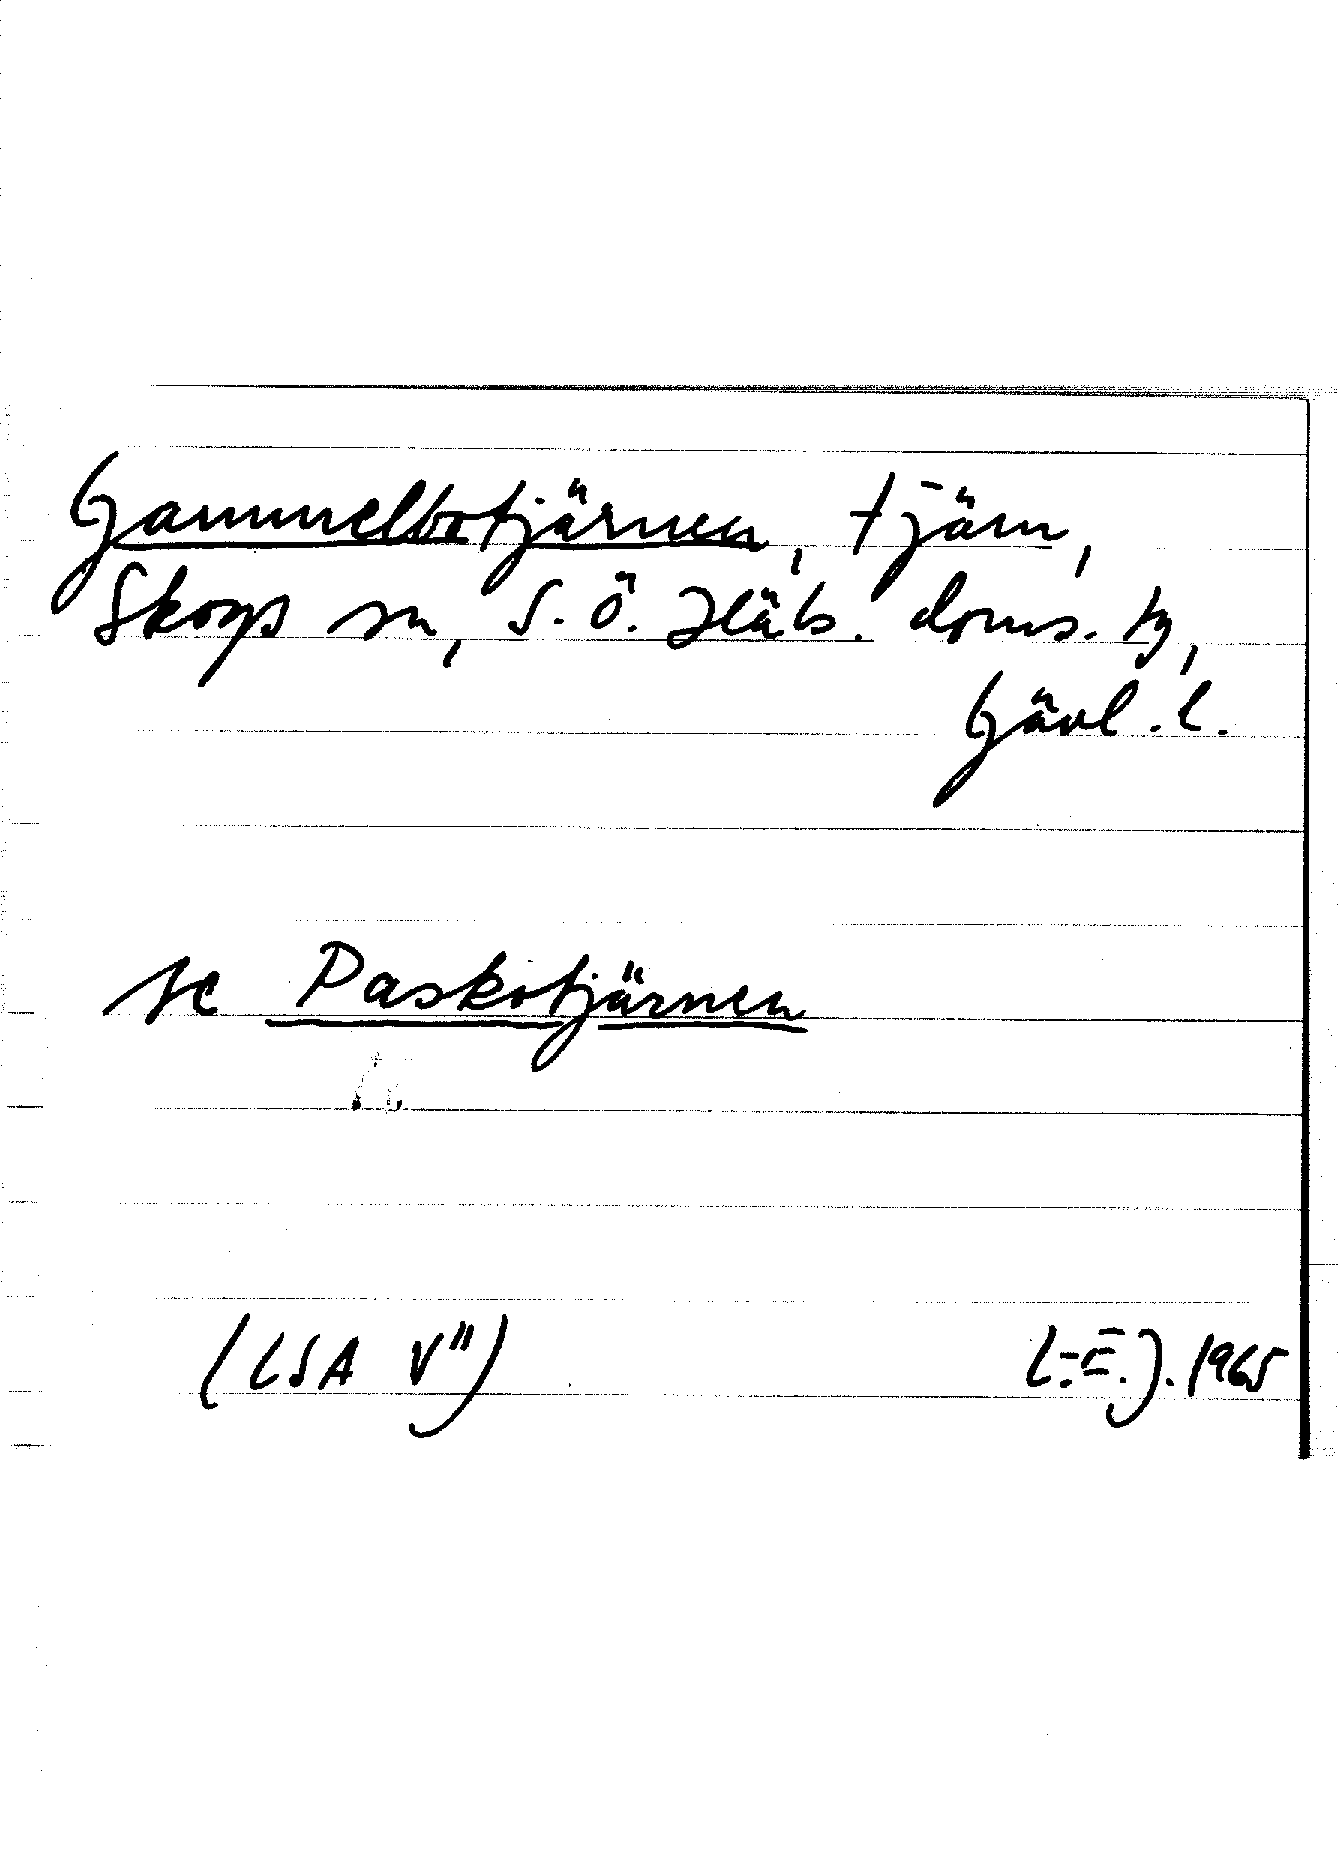 Gammelbotjärnen, tjärn,
Skogs sn, S. Ö. Häls. doms. tg,
Gävl. l.
se Paskotjärnen
(LSA V")
L.-E. J. 1965